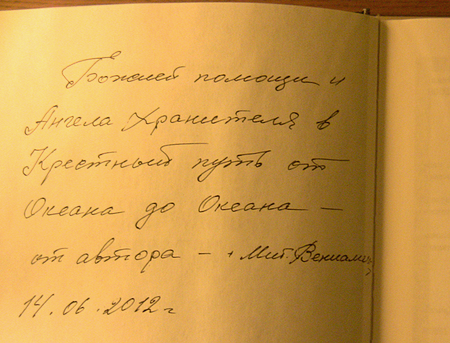 Божией помощи и
Ангела Хранителя в
Крестный путь от
Океана до Океана –
от автора – + Мит. Вениамин
14.06.2012 г